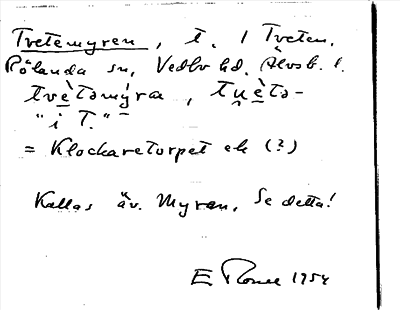 Tvetemyren, t. 1 Tveten,
Rölanda sn, Vedbo hd, Älvsb. l.
tvè̱təmýra, tu̯è̱tə-
"i T."
= Klockaretorpet ek (?)
Kallas äv. Myren, Se detta!
E 1954